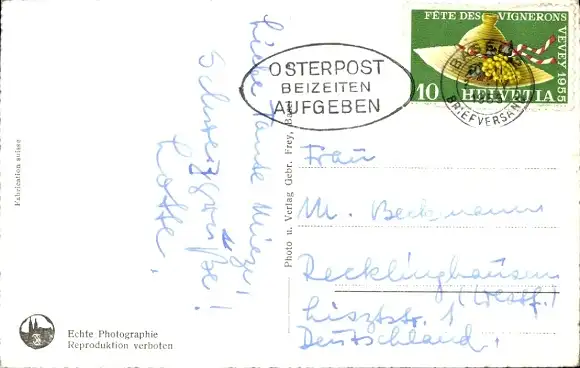 Liebe Tante Mieze,
Schweizgrüße!
Lotte.
OSTERPOST
BEIZEITEN
AUFGEBEN
FÊTE DES VIGNERONS
VEVEY 1955
10 HELVETIA
BRIEFVERSAND
Frau
M. Beckmann
Recklinghausen
(Westf.)
Lisztstr. 1
Deutschland.
Photo u. Verlag Gebr. Frey, Basel
Fabrication suisse
Echte Photographie
Reproduktion verboten